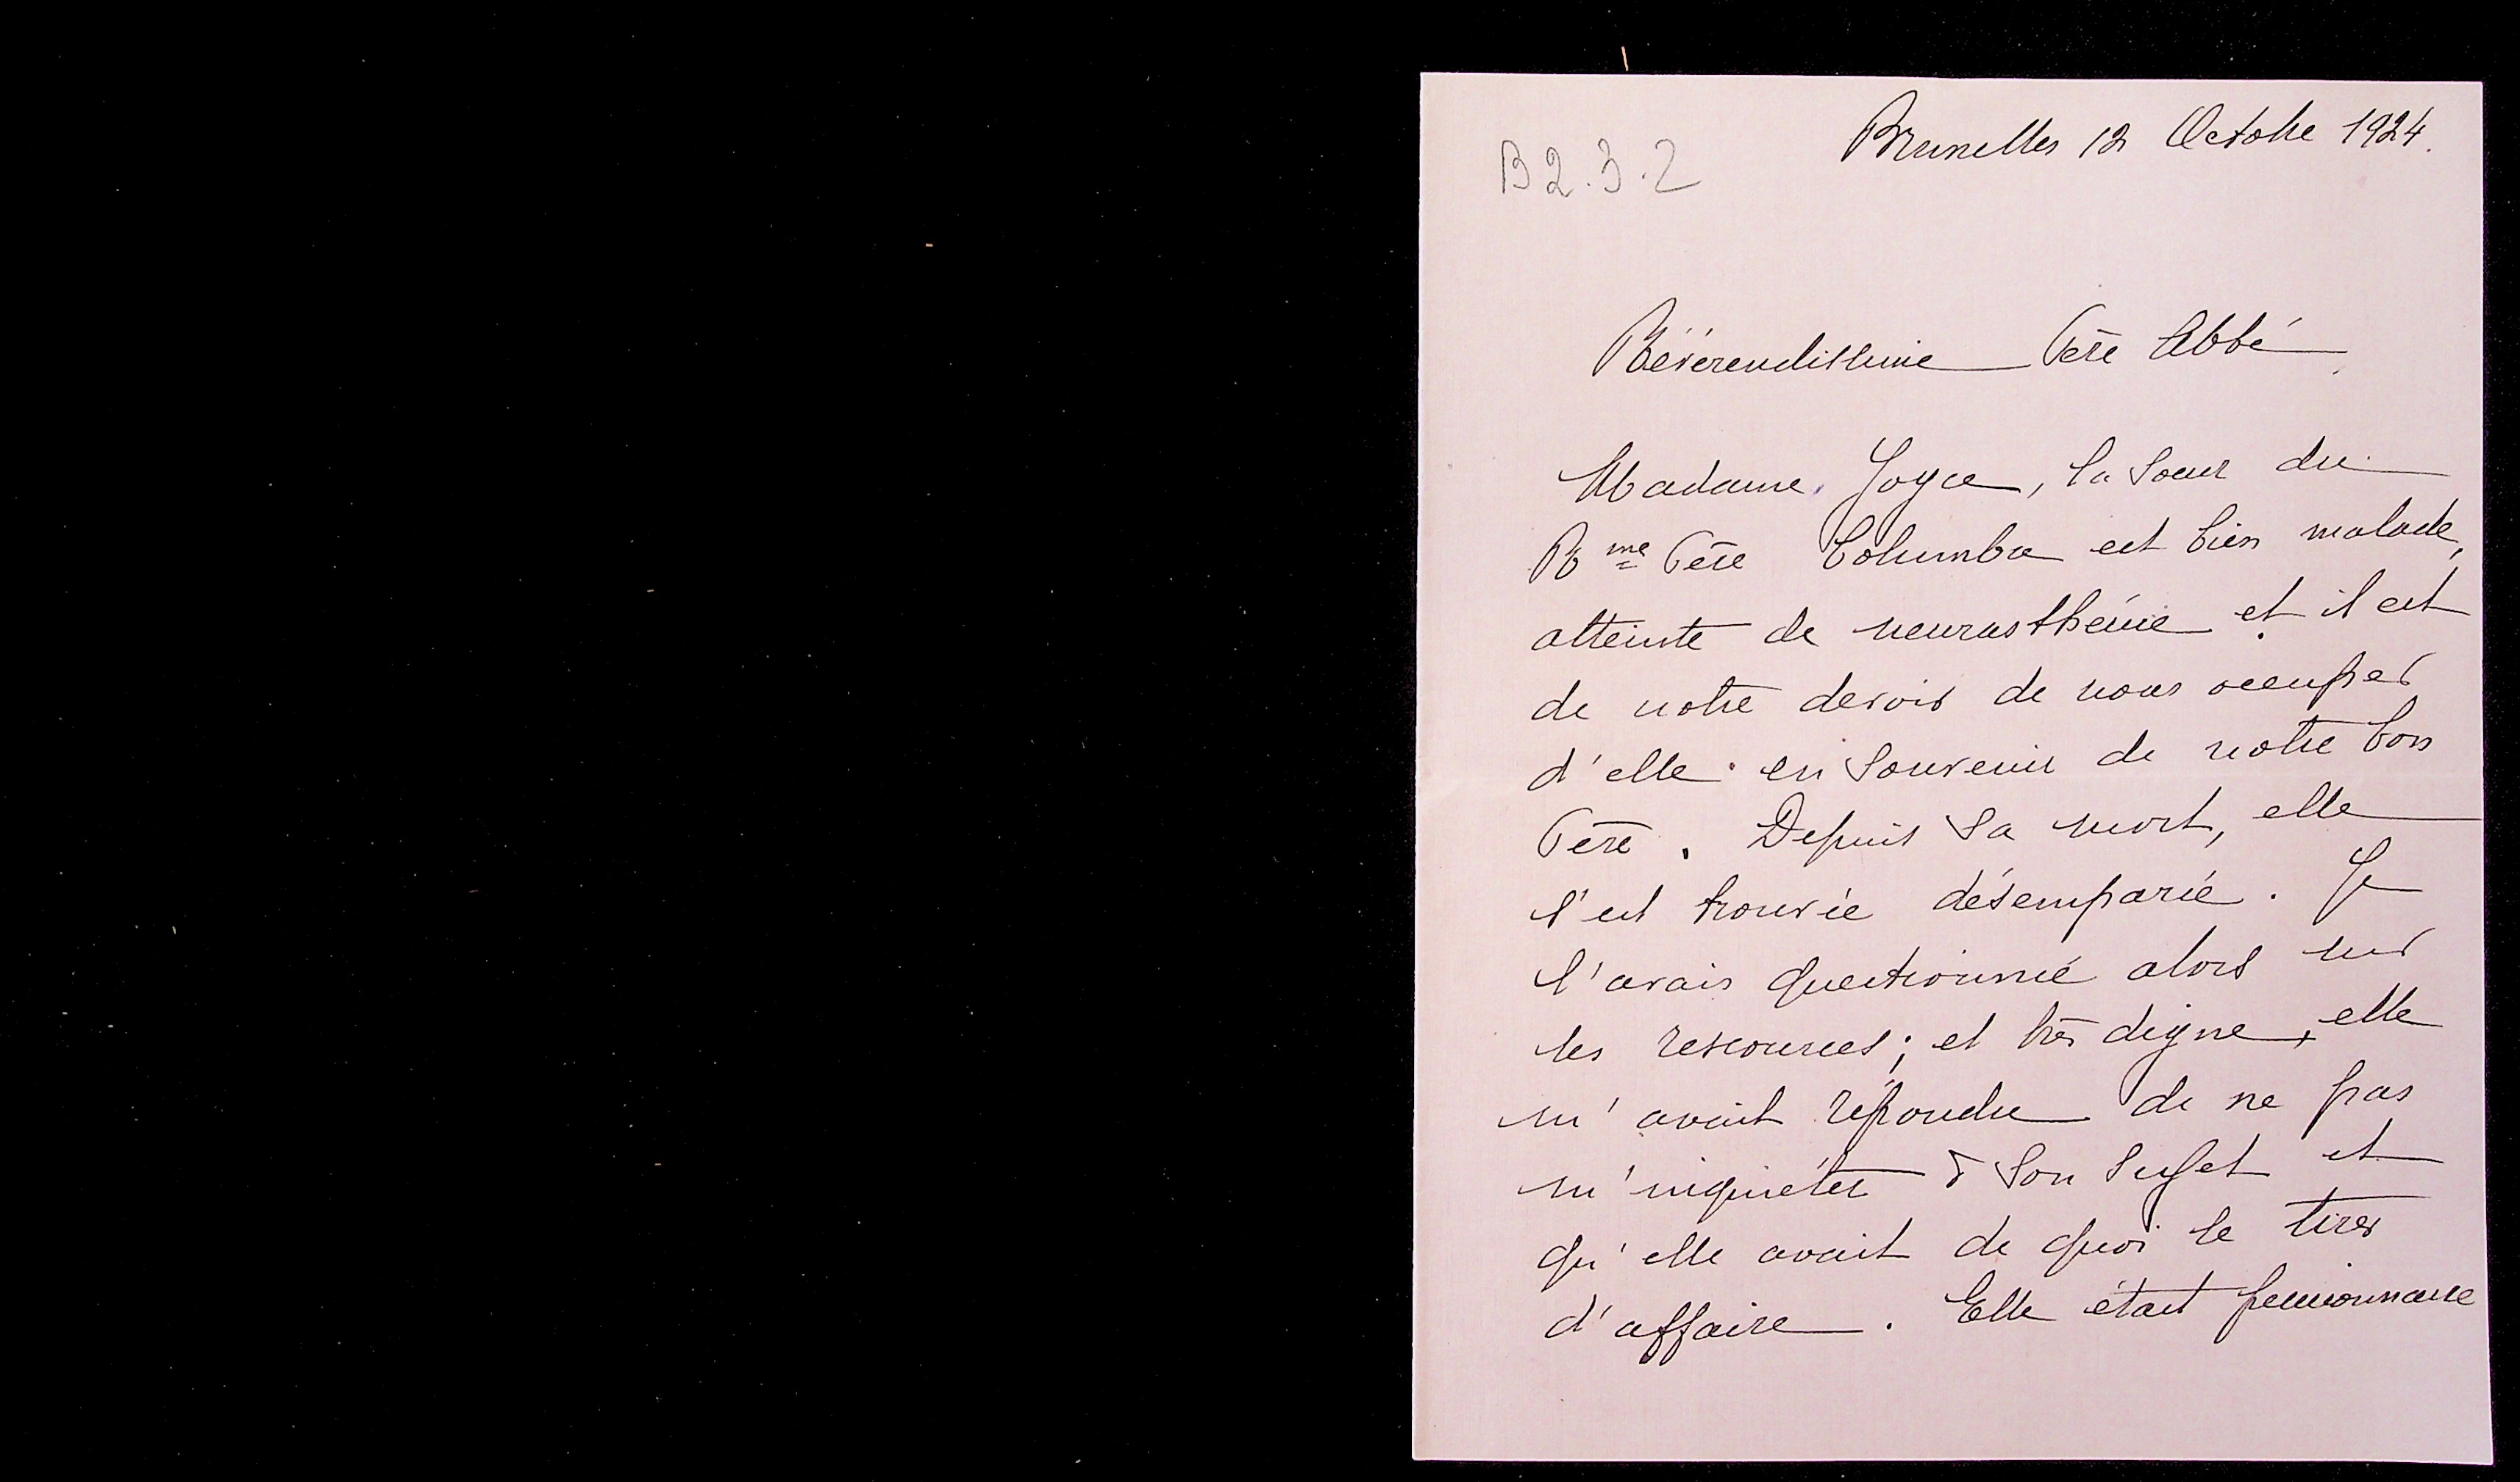 Bruxelles 12 Octobre 1924.
B 2.3.2
Révérendissime Père Abbé
Madame Joyce, la soeur du
Rme Père Columba est bien malade,
atteinte de neurasthénie et il est
de notre devoir de nous occuper
d'elle en souvenir de notre bon
Père. Depuis sa mort, elle
s'est trouvée désemparée. Je
l'avais questionnée alors sur
ses ressources; et très digne, elle
m'avait répondu de ne pas
m'inquiéter à son sujet et
qu'elle avait de quoi se tirer
d'affaire. Elle était pensionnaire